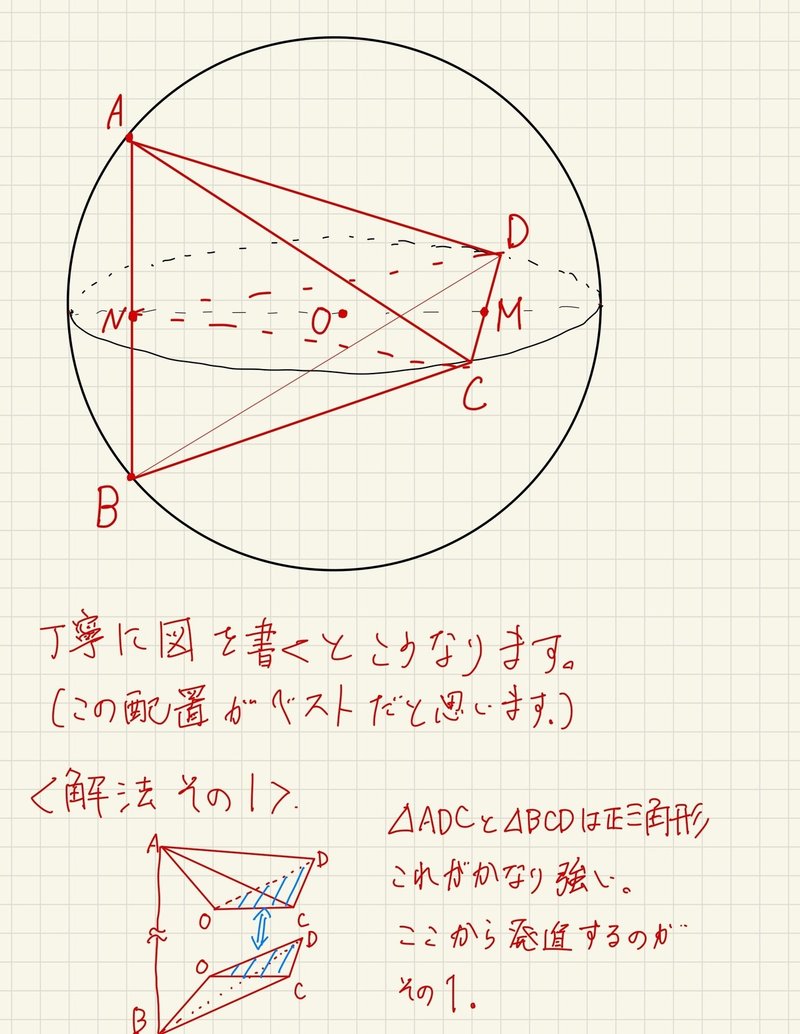 A
D
N
O
M
C
B
丁寧に図を書くとこうなります。
(この配置がベストだと思います.)
<解法 その1>.
△ADCと△BCDは正三角形
これがかなり強い。
ここから発進するのが
その1.
A
D
O
C
D
O
C
B